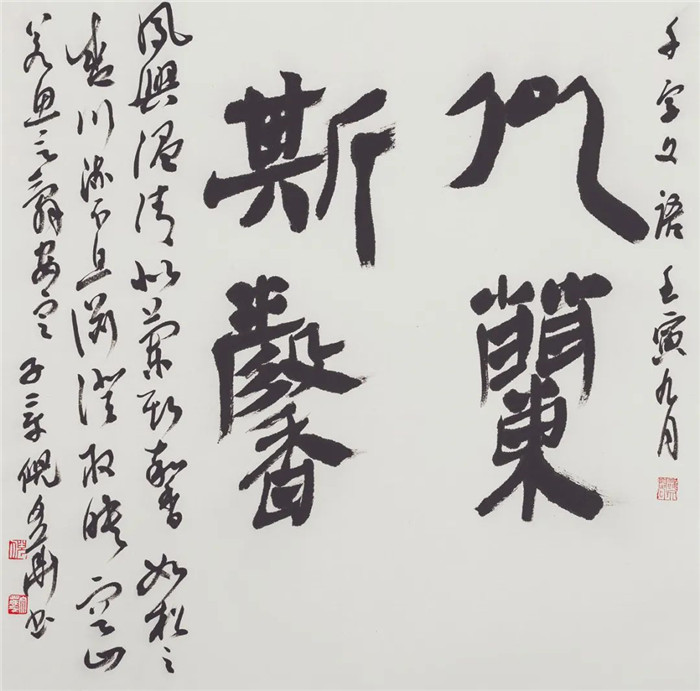 千字文語壬寅九月
似蘭
斯馨
夙興温凊似蘭斯馨如松之
盛川流不息淵澄取映容止
若思言辭安定